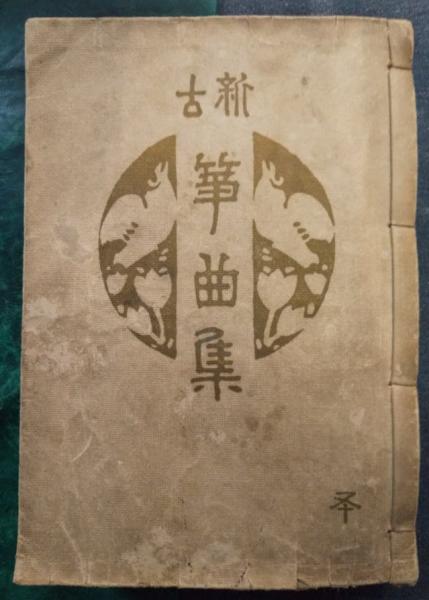 新古
箏曲集